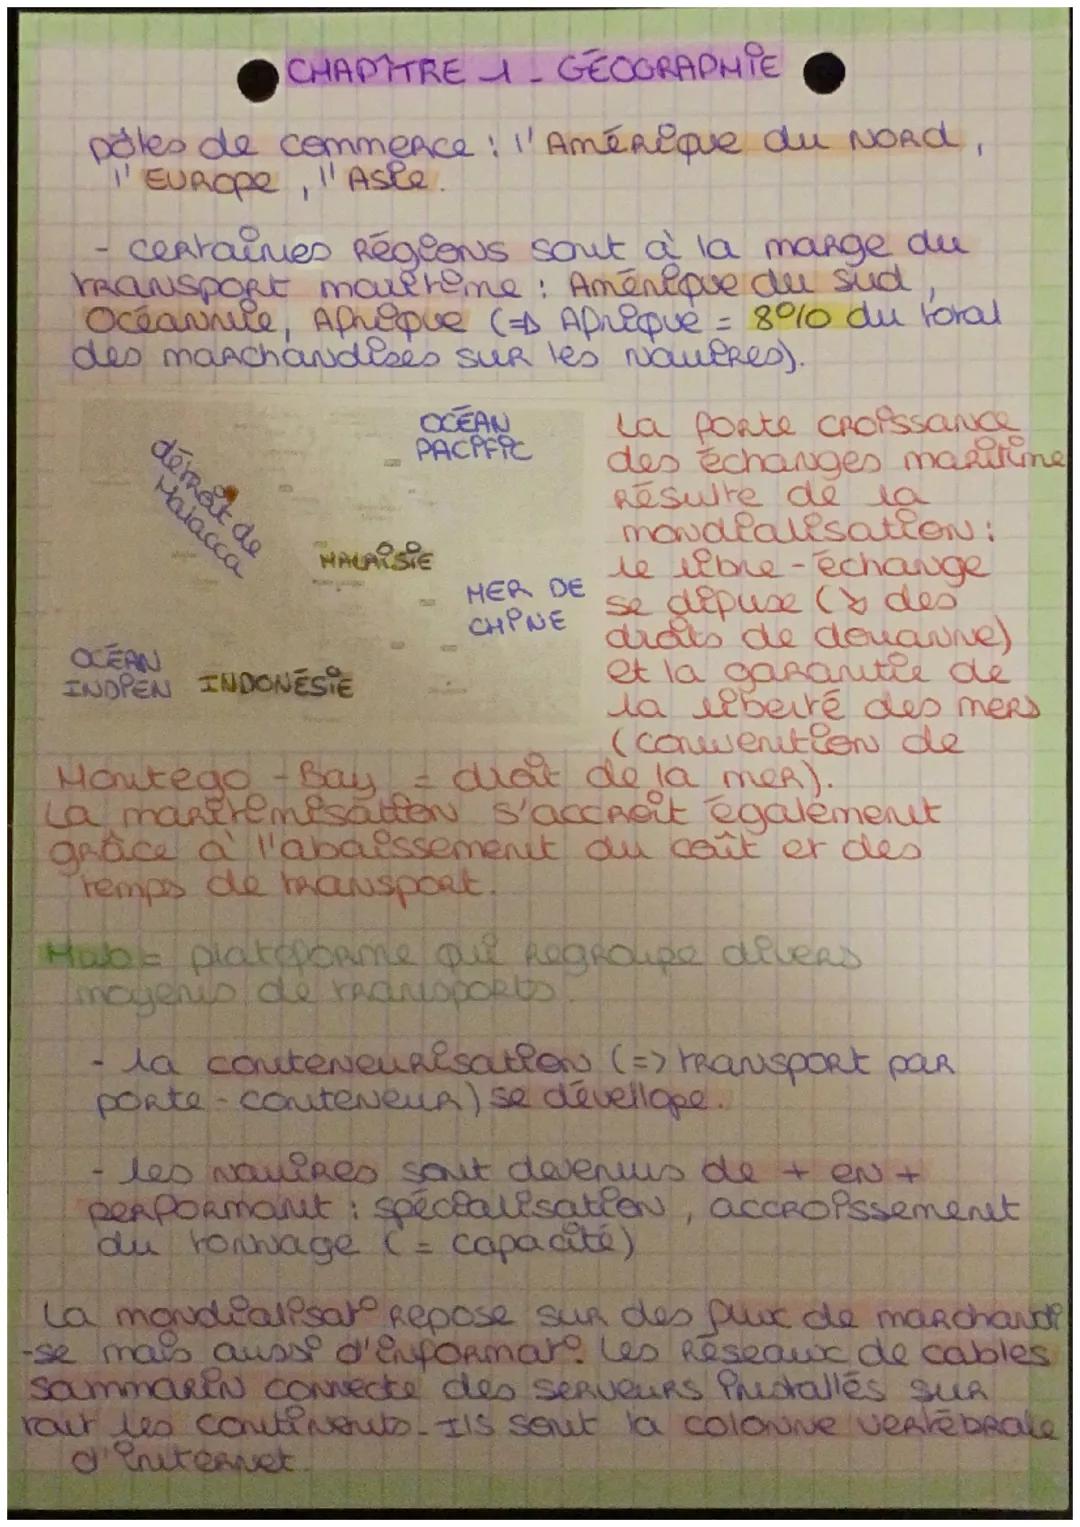 CHAPITRE 1 - GÉOGRAPHIE
pôles de commerce : l'Amérique du NORD,
l'EUROPE, l'Asie.
- certaines Régions sont à la marge du
transport maritime : Amérique du Sud,
Océannie, Afrique (=> Afrique = 8% du total
des marchandises sur les navires).
OCÉAN
PACIFIC
détroit de
Malacca
MALAISIE
MER DE
CHINE
OCÉAN
INDIEN
INDONÉSIE
La forte croissance
des échanges maritime
Résulte de la
mondialisation :
le libre-échange
se difuse (↘ des
droits de douanne)
et la garantie de
la liberté des mers
(convention de
Montego-Bay = droit de la mer).
La maritimisation s'accroit également
grâce à l'abaissement du coût et des
temps de transport.
Hub = platefforme qui regroupe divers
moyens de transports.
- la conteneurisation (=> transport par
porte-conteneur) se dévellope.
- les navires sont devenus de + en +
performant : spécialisation, accroissement
du tonnage (= capacité)
La mondialisat° repose sur des flux de marchandi
-se mais aussi d'informat°. Les Réseaux de cables
sammarin connecte des serveurs installés sur
tout les continents. Ils sont la colonne vertébrale
d'internet.